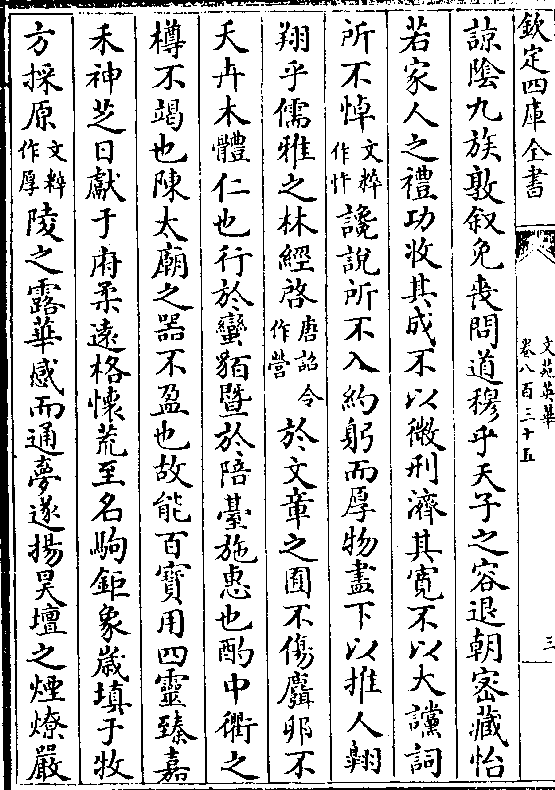 欽定四庫全書
文苑英華
卷八百三十五
三
諒陰九族敦叙免喪問道穆乎天子之容退朝宻藏怡
若家人之禮功收其成不以微刑濟其寛不以大讜詞
所不悼文粹作忤讒說所不入約躬而厚物盡下以推人翺
翔乎儒雅之林經啓唐詔令作營於文章之囿不傷麛卵不
夭卉木體仁也行於蠻貊暨於陪臺施惠也酌中衢之
樽不竭也陳太廟之器不盈也故能百寳用四靈臻嘉
禾神芝日獻于府柔逺格懐荒至名駒鉅象嵗填于牧
方採原文粹作厚陵之露華感而通夢遂揚昊壇之煙燎嚴